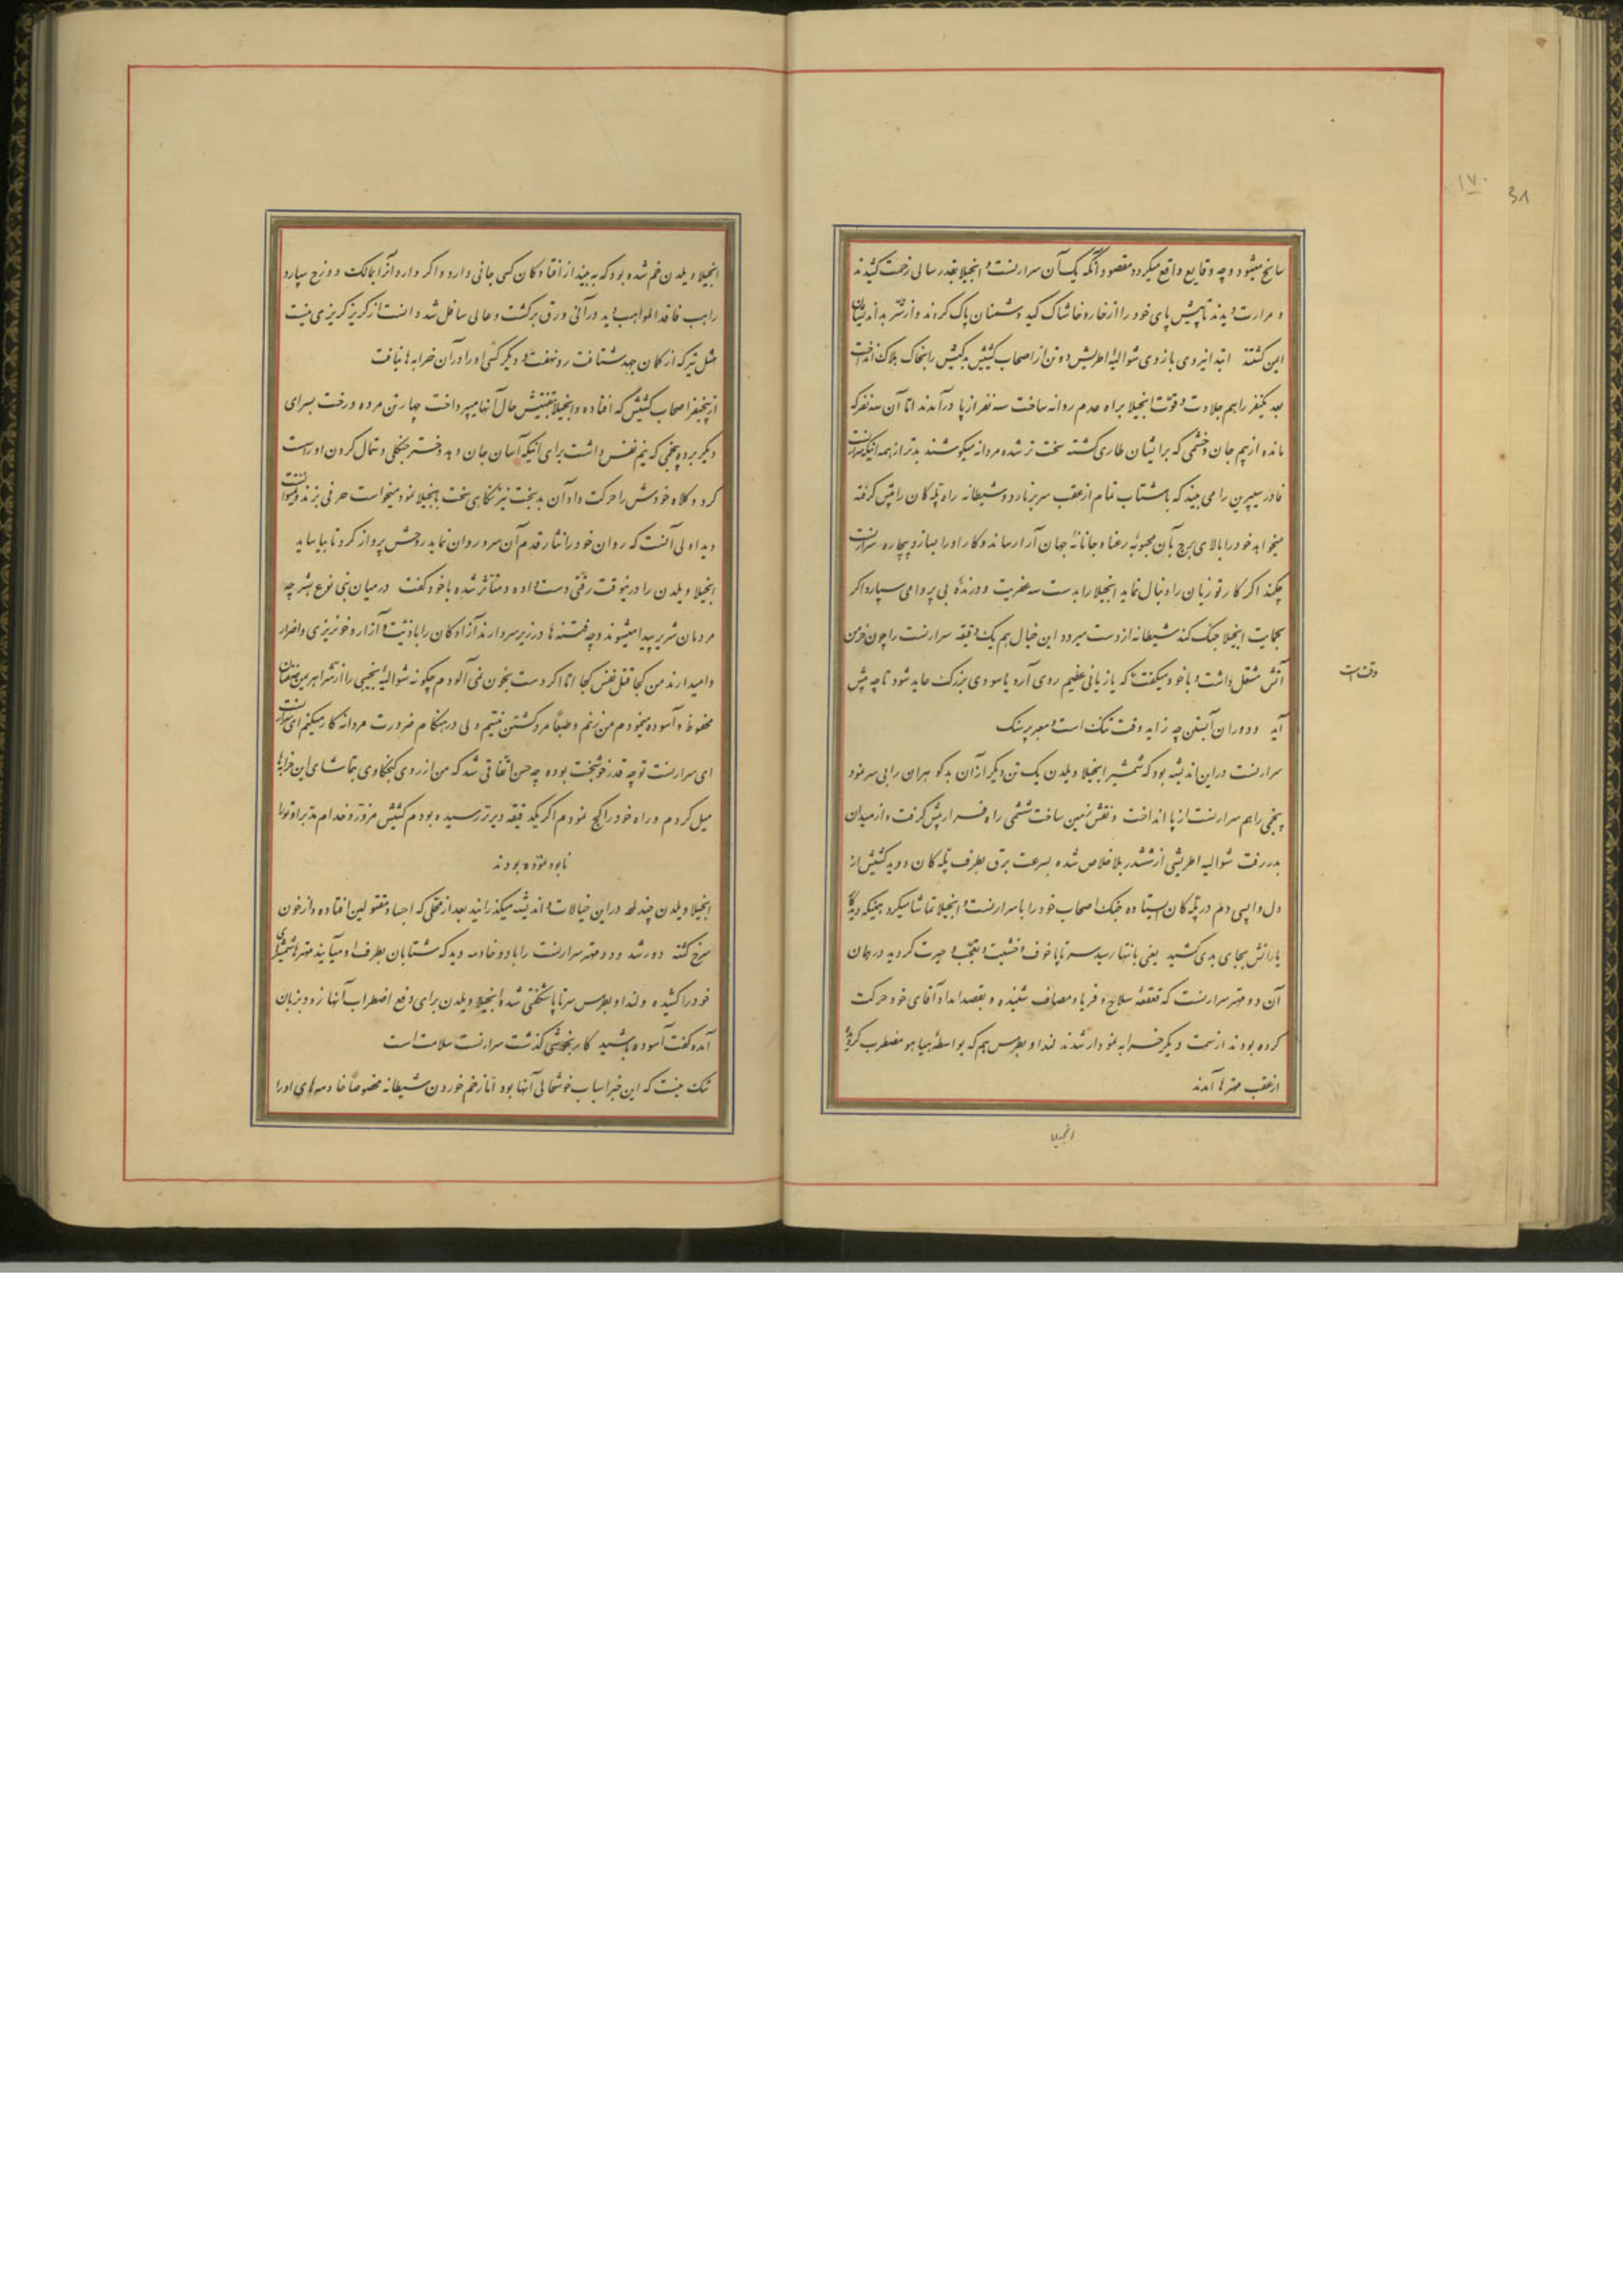 ۱۷۰
۳۸
سانح میشود و چه وقایع واقع میگردد مقصود آنکه یک آن سرارنست و انجیلا بقدر سالی زحمت کشیدند
و مرارت دیدند تا پیش پای خود را از خار و خاشاک کید دشمنان پاک کردند و از شر بداندیشان
ایمن گشتند ابتدا نیروی بازوی شوالیهٔ اطریش دو تن از اصحاب کشیش بدکیش را بخاک هلاک انداخت
بعد یکنفر را هم جلادت و قوت انجیلا براه عدم روانه ساخت سه نفر از پا درآمدند اما آن سه نفر که
مانده از بیم جان و خشمی که بر ایشان طاری گشته سخت تر شده مردانه میکوشند بدتر از همه اینکه سرارنست
فادر سیپرین را می بیند که باشتاب تمام از عقب سر برنارد و شیطانه راه پله کان را پیش گرفته
میخواهد خود را بالای برج بآن محبوبهٔ رعنا و جانانهٔ جهان آرا رساند و کار او را بسازد بیچاره سرارنست
چکند اگر کار تو زیان را دنبال نماید انجیلا را بدست سه عفریت و درندهٔ بی پروا می سپارد و اگر
بحمایت انجیلا جنگ کند شیطانه از دست میرود این خیال هم یک دقیقه سرارنست را چون خرمن
آتش مشتعل داشت و با خود میگفت که یا زیانی عظیم روی آرد یا سودی بزرگ عاید شود تا چه پیش
وقت است
آید و دوران آبستن چه زاید وقت تنگ است و معبر پر سنگ
سرارنست در این اندیشه بود که شمشیر انجیلا ویلدن یک تن دیگر از آن بدگوهران را بی سر نمود
پنجمی را هم سرارنست از پا انداخت و نقش زمین ساخت ششمی راه فرار پیش گرفت و از میدان
بدر رفت شوالیه اطریشی از ششدر بلا خلاص شده بسرعت برق بطرف پله کان دوید کشیش از
دل واپسی دم در پله کان ایستاده جنگ اصحاب خود را با سرارنست و انجیلا تماشا میکرد همینکه دید کار
یارانش بجای بدی کشید یعنی بانتها رسید سر تا پا خوف و خشیت و تعجب و حیرت گردید در همان
آن دو مهتر سرارنست که قعقعهٔ سلاح و فریاد مصاف شنیده و بقصد امداد آقای خود حرکت
کرده بودند از سمت دیگر خرابه نمودار شدند لندا و بطرس هم که بواسطهٔ هیاهو مضطرب گردیده
از عقب مهترها آمدند
انجیلا
انجیلا ویلدن خم شده بود که ببیند از افتادگان کسی جانی دارد و اگر دارد آنرا بمالک دوزخ سپارد
راهب فاقد المواهب دید در آنی ورق برگشت و عالی سافل شد دانست از گریز گریزی نیست
مثل تیر که از کمان جهد شتافت رو نهفت و دیگر کسی او را در آن خرابه ها نیافت
از پنجنفر اصحاب کشیش که افتاده و انجیلا بتفتیش حال آنها میپرداخت چهار تن مرده و رخت بسرای
دیگر برده پنجمی که نیم نفس داشت برای اینکه آسان جان دهد دختر جنگلی دستمال گردن او را سست
کرد و کلاه خودش را حرکت داد آن بدبخت نیز نگاهی سخت بانجیلا نمود میخواست حرفی بزند نتوانست
دید اولی آنست که روان خود را نثار قدم آن سرو روان نماید روحش پرواز کرد تا بیاساید
انجیلا ویلدن را در نیوقت رقتی دست داده و متأثر شده با خود گفت در میان بنی نوع بشر چه
مردمان شریر پیدا میشوند و چه فتنه ها در زیر سر دارند آزادگان را باذیت و آزار و خونریزی و اضرار
وامیدارند من کجا قتل نفس کجا اما اگر دست بخون نمی آلودم چگونه شوالیه نجیبی را از شر اهریمن صفتان
محفوظ و آسوده مینمودم من زنم و طبعاً مرد کشتن نیستم ولی در هنگام ضرورت مردانه کار میکنم ای سرارنست
ای سرارنست تو چه قدر خوشبخت بوده چه حسن اتفاقی شد که من از روی کنجکاوی بتماشای این خرابها
میل کردم و راه خود را کج نمودم اگر یکدقیقه دیرتر رسیده بودم کشیش مزور و خدام مدبر او تو را
نابود نموده بودند
انجیلا ویلدن چند لحه در این خیالات و اندیشه میگذرانید بعد از محلی که اجساد مقتولین افتاده و از خون
سرخ گشته دور شد و دو مهتر سرارنست را با دو خادمه دید که شتابان بطرف او میآیند مهترها شمشیرهای
خود را کشیده و لندا و بطرس سر تا پا شگفتی شده انجیلا ویلدن برای دفع اضطراب آنها زود بزبان
آمده گفت آسوده باشید کار بخوشی گذشت سرارنست سلامت است
شک نیست که این خبر اسباب خوشحالی آنها بود اما زخم خوردن شیطانه مخصوصاً خادمه های او را